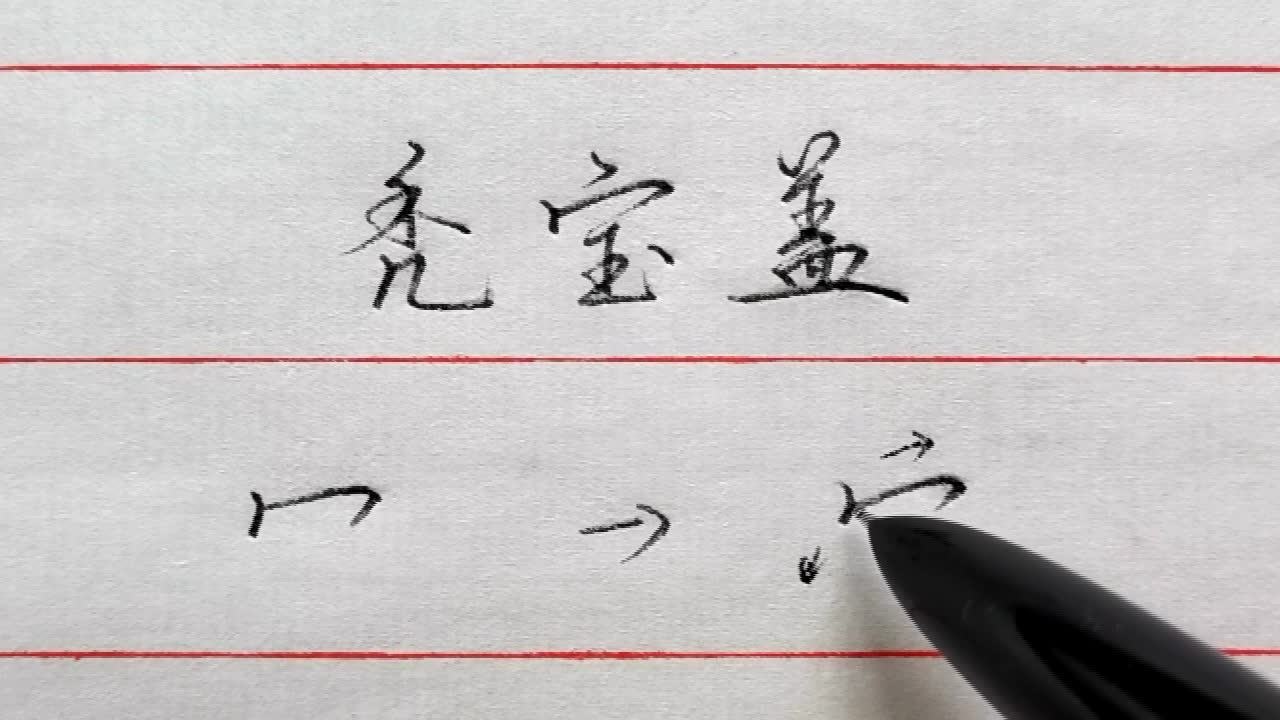 秃宝盖
冖 → 冖